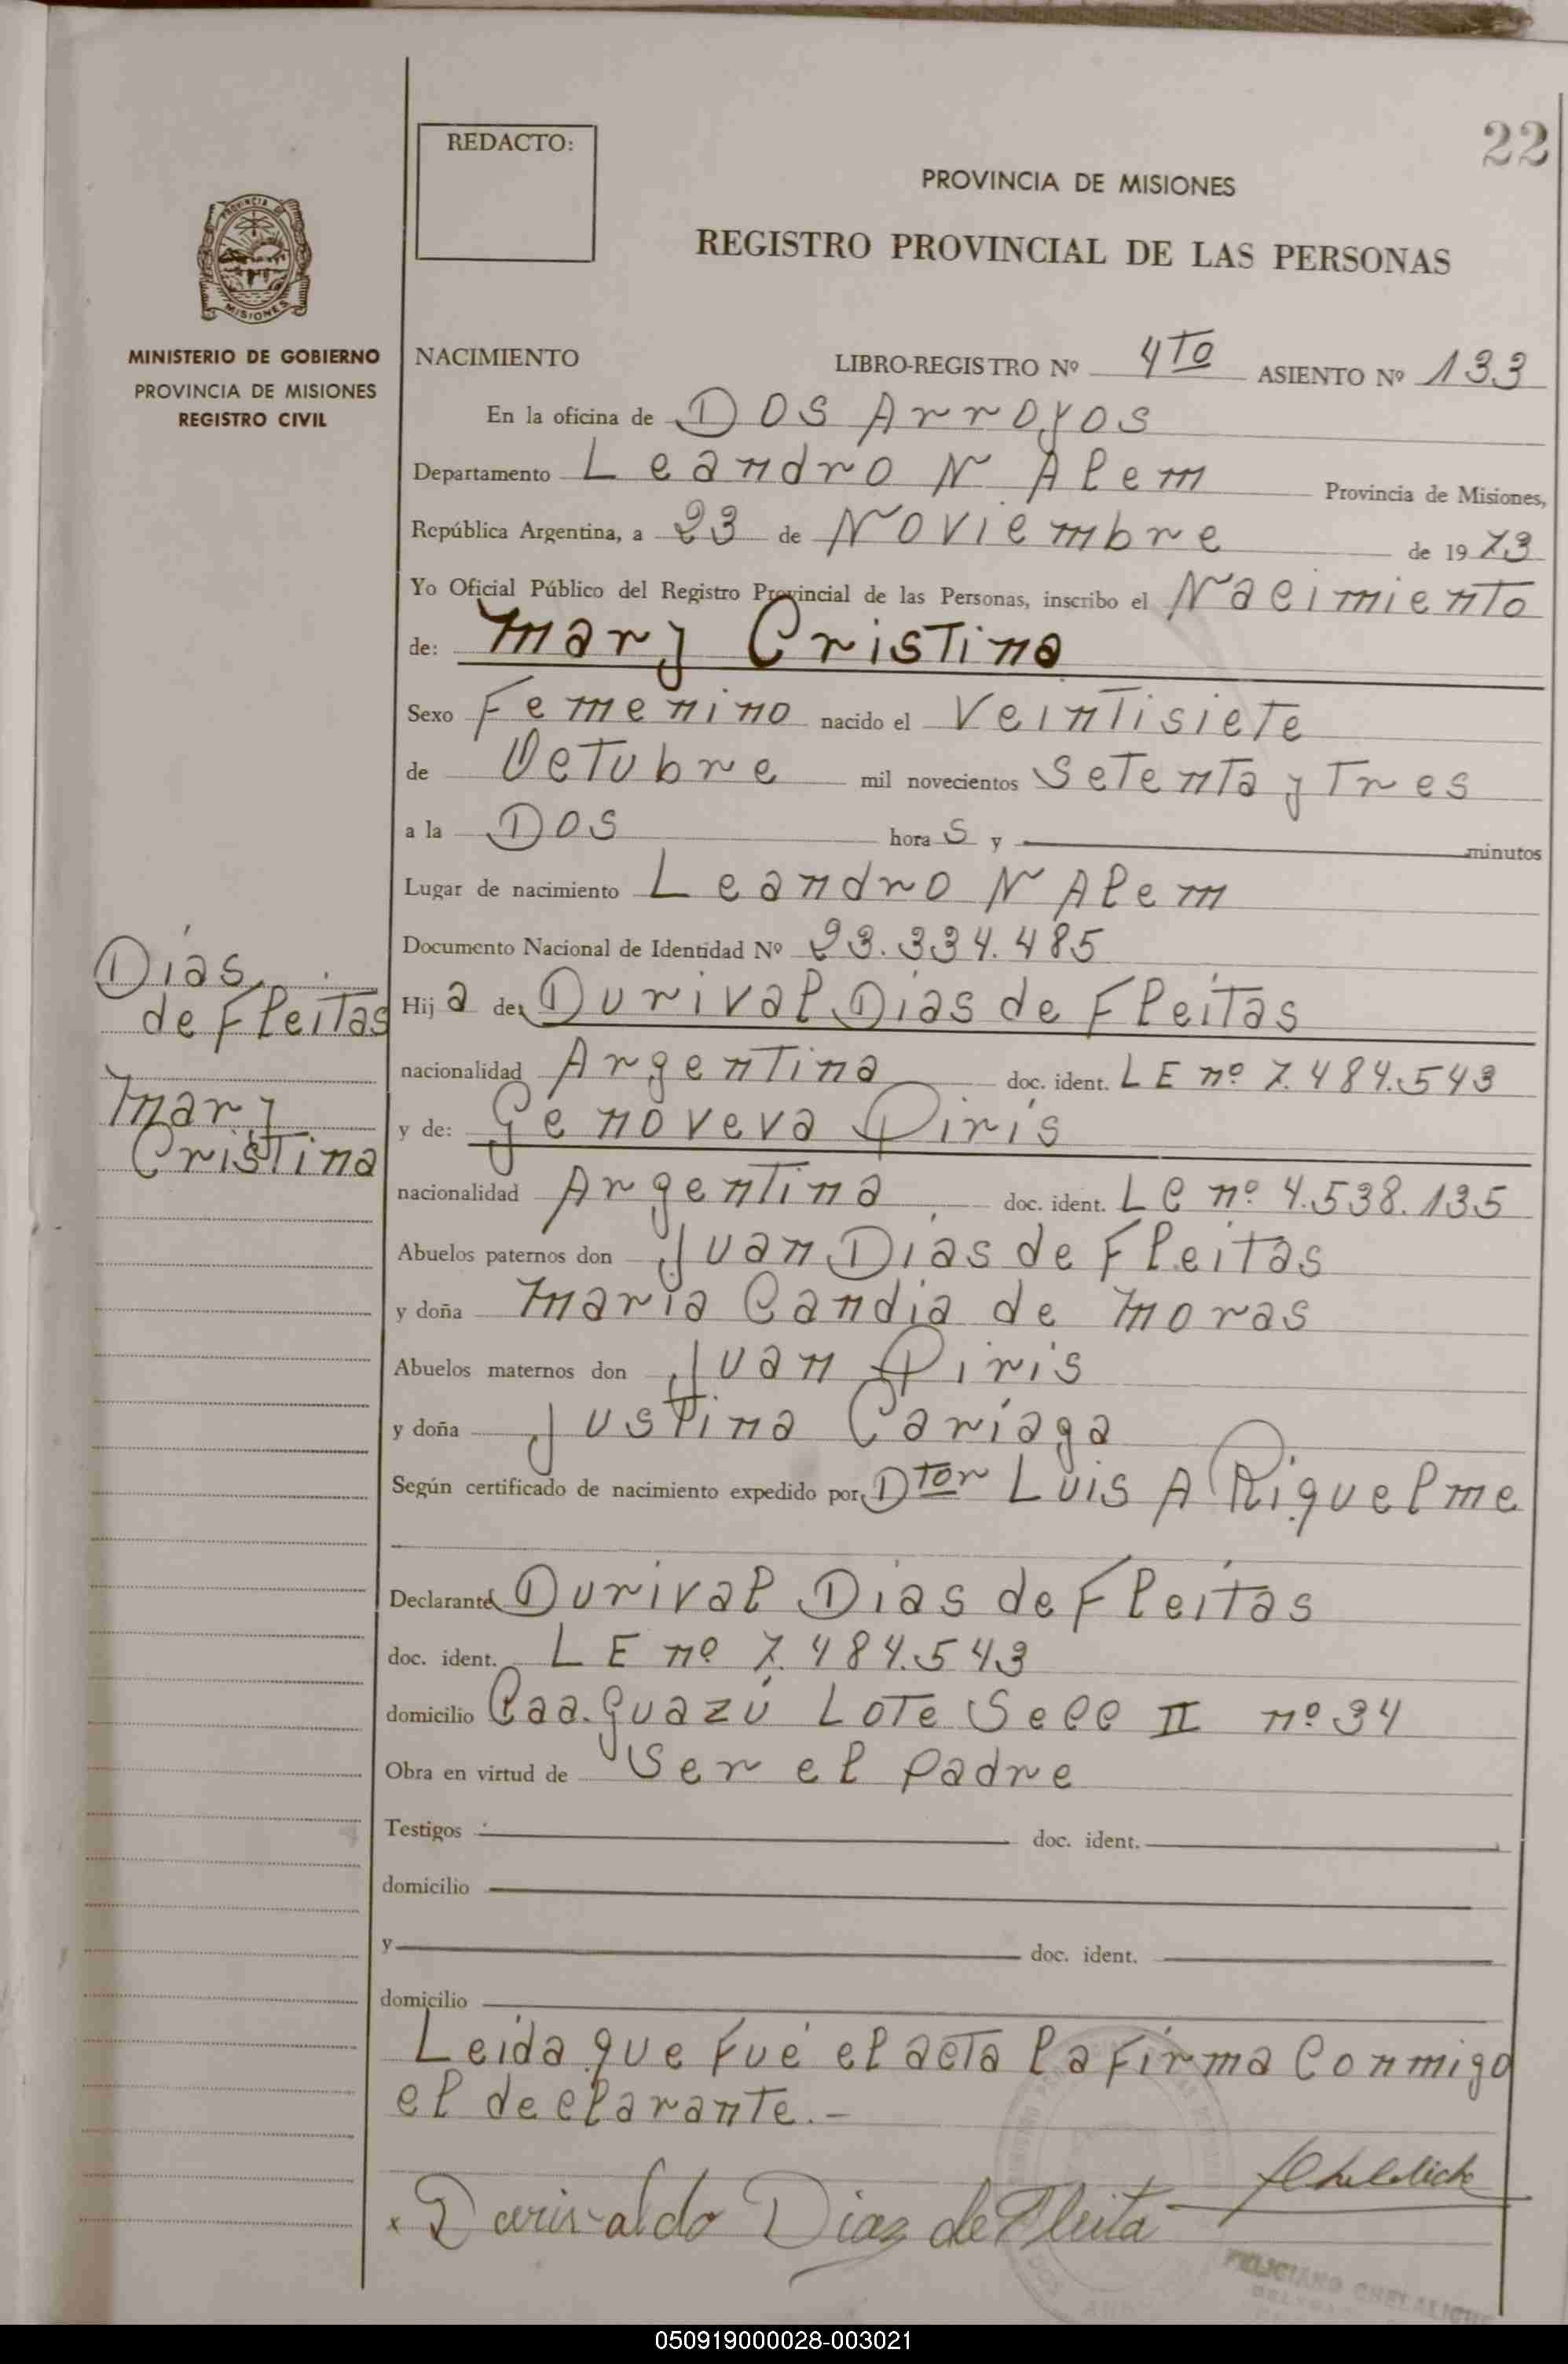 22
REDACTO:
PROVINCIA DE MISIONES
REGISTRO PROVINCIAL DE LAS PERSONAS
PROVINCIA DE
MISIONES
MINISTERIO DE GOBIERNO
PROVINCIA DE MISIONES
REGISTRO CIVIL
NACIMIENTO LIBRO-REGISTRO Nº 4TO ASIENTO Nº 133
En la oficina de Dos Arroyos
Departamento Leandro N Alem Provincia de Misiones,
República Argentina, a 23 de Noviembre de 1973
Yo Oficial Público del Registro Provincial de las Personas, inscribo el Nacimiento
de: Mary Cristina
Sexo Femenino nacido el Veintisiete
de Octubre mil novecientos Setenta y Tres
a la Dos hora s y minutos
Lugar de nacimiento Leandro N Alem
Documento Nacional de Identidad Nº 23.334.485
Días
de Fleitas
Mary
Cristina
Hij a de Durival Días de Fleitas
nacionalidad Argentina doc. ident. LE nº 7.484.543
y de: Genoveva Piris
nacionalidad Argentina doc. ident. LC nº 4.538.135
Abuelos paternos don Juan Días de Fleitas
y doña María Candia de Moras
Abuelos maternos don Juan Piris
y doña Justina Caríaga
Según certificado de nacimiento expedido por Dtor Luis A Riquelme
Declarante Durival Días de Fleitas
doc. ident. LE nº 7.484.543
domicilio Caa-Guazú Lote Secc II nº 34
Obra en virtud de Ser el Padre
Testigos doc. ident.
domicilio
y doc. ident.
domicilio
Leída que fué el acta la firma Conmigo
el declarante.-
Durivaldo Diaz de Fleita
FELICIANO CHELALICHE
050919000028-003021